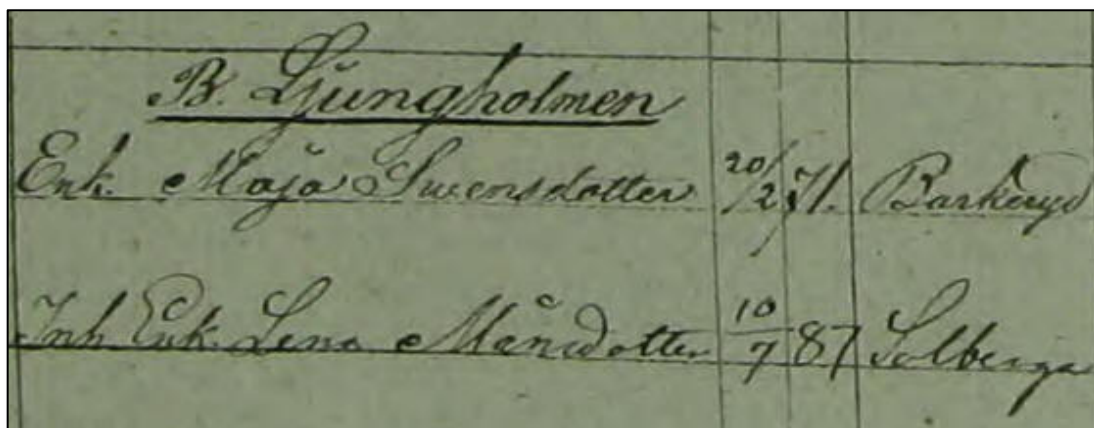 B. Ljungholmen
Enk. Maja Swensdotter 20/2 71. Barkeryd
Inh Enk. Lena Månsdotter 10/7 87 Solberga